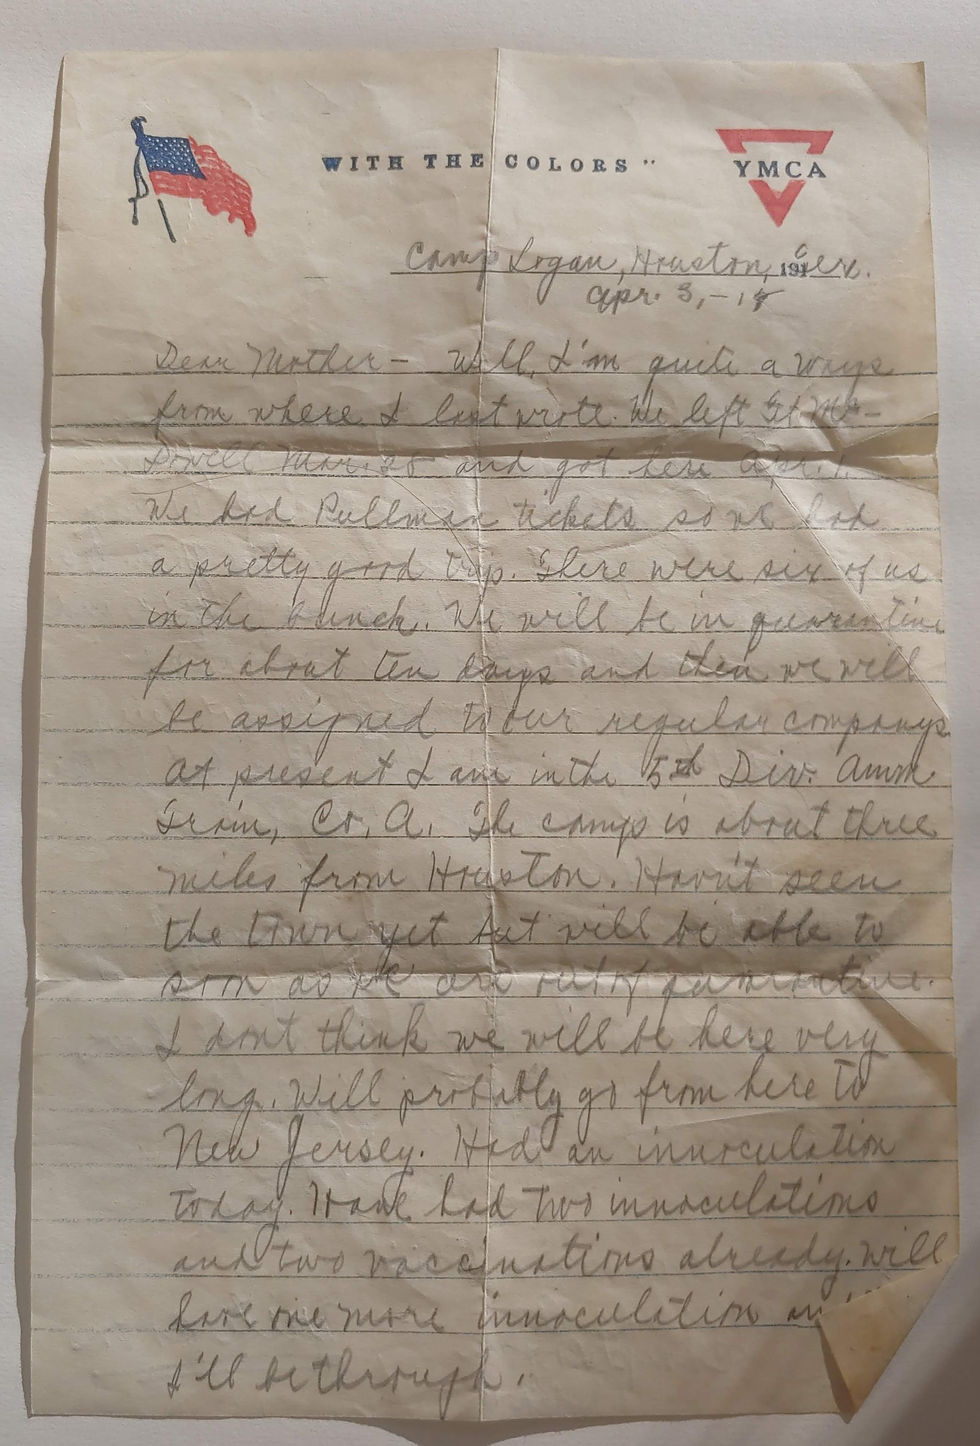 WITH THE COLORS"
YMCA
Camp Logan, Houston, 191 Tex.
Apr. 3,-18
Dear Mother - Well, I'm quite a ways
from where I last wrote. We left Ft. Mc-
Dowell Mar. 28 and got here Apr. 1.
We had Pullman tickets so we had
a pretty good trip. There were six of us
in the bunch. We will be in quarantine
for about ten days and then we will
be assigned to our regular companys
At present I am in the 5th Div. Amm
Train, Co. A. The camp is about three
miles from Houston. Havn't seen
the town yet but will be able to
soon as we are out of quarantine.
I don't think we will be here very
long. Will probably go from here to
New Jersey. Had an innoculation
today. Have had two innoculations
and two vaccinations already. Will
have one more innoculation
I'll be through.